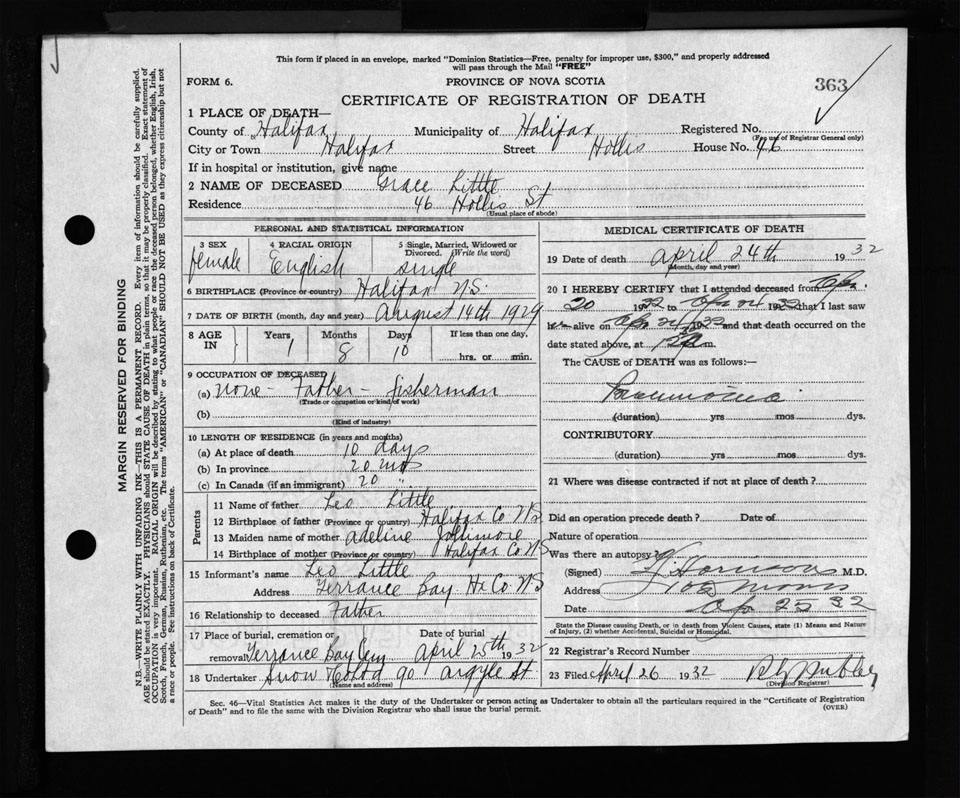 This form if placed in an envelope, marked "Dominion Statistics—Free, penalty for improper use, $300," and properly addressed
will pass through the Mail "FREE"
FORM 6.
PROVINCE OF NOVA SCOTIA
363
CERTIFICATE OF REGISTRATION OF DEATH
1 PLACE OF DEATH—
County of Halifax Municipality of Halifax Registered No.
(For use of Registrar General only)
City or Town Halifax Street Hollis House No. 46
If in hospital or institution, give name
2 NAME OF DECEASED Grace Little
Residence 46 Hollis St
(Usual place of abode)
PERSONAL AND STATISTICAL INFORMATION
3 SEX 4 RACIAL ORIGIN 5 Single, Married, Widowed or
Divorced. (Write the word)
female English single
6 BIRTHPLACE (Province or country) Halifax N.S.
7 DATE OF BIRTH (month, day and year) August 14th 1929
8 AGE IN Years Months Days If less than one day,
1 8 10 hrs. or min.
9 OCCUPATION OF DECEASED
(a) none - Father - fisherman
(Trade or occupation or kind of work)
(b)
(Kind of industry)
10 LENGTH OF RESIDENCE (in years and months)
(a) At place of death 10 days
(b) In province 20 mos
(c) In Canada (if an immigrant) 20 "
Parents
11 Name of father Leo Little
12 Birthplace of father (Province or country) Halifax Co NS
13 Maiden name of mother Adeline Jollimore
14 Birthplace of mother (Province or country) Halifax Co NS
15 Informant's name Leo Little
Address Terrance Bay Hx Co NS
16 Relationship to deceased Father
17 Place of burial, cremation or Date of burial
removal Terrance Bay Cem April 25th 1932
18 Undertaker Snow & Co Ltd 90 Argyle St
(Name and address)
MEDICAL CERTIFICATE OF DEATH
19 Date of death April 24th 1932
(Month, day and year)
20 I HEREBY CERTIFY that I attended deceased from Apr
20 1932 to Apr 24 1932 that I last saw
alive on Apr 24 1932 and that death occurred on the
date stated above, at m.
The CAUSE of DEATH was as follows:
Pneumonia
(duration) yrs mos dys.
CONTRIBUTORY
(duration) yrs mos dys.
21 Where was disease contracted if not at place of death?
Did an operation precede death? Date of
Nature of operation
Was there an autopsy?
(Signed) M.D.
Address
Date Apr 25 32
State the Disease causing Death, or in death from Violent Causes, state (1) Means and Nature
of Injury, (2) whether Accidental, Suicidal or Homicidal.
22 Registrar's Record Number
23 Filed April 26 1932
(Division Registrar)
Sec. 46—Vital Statistics Act makes it the duty of the Undertaker or person acting as Undertaker to obtain all the particulars required in the "Certificate of Registration
of Death" and to file the same with the Division Registrar who shall issue the burial permit.
(OVER)
MARGIN RESERVED FOR BINDING
N.B.—WRITE PLAINLY WITH UNFADING INK—THIS IS A PERMANENT RECORD. Every item of information should be carefully supplied.
AGE should be stated EXACTLY. PHYSICIANS should STATE CAUSE OF DEATH in plain terms, so that it may be properly classified. Exact statement of
OCCUPATION is very important. RACIAL ORIGIN will be described by stating to what people or race the deceased person belonged, whether English, Irish,
Scotch, French, German, Russian, Ruthenian, etc. The terms "AMERICAN" or "CANADIAN" SHOULD NOT BE USED as they express citizenship but not
a race or people. See instructions on back of Certificate.